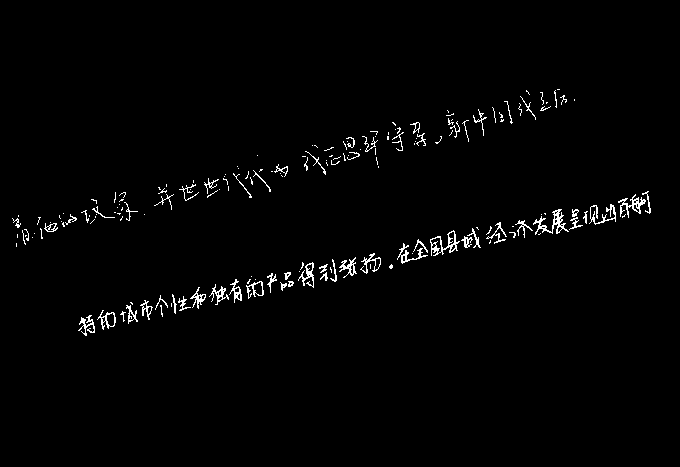 着他的坟家,并世世代代为戏志思辈守墓。新中国成立后,
特的城市个性和独有的产品得到张扬。在全国县域经济发展呈现出百舸